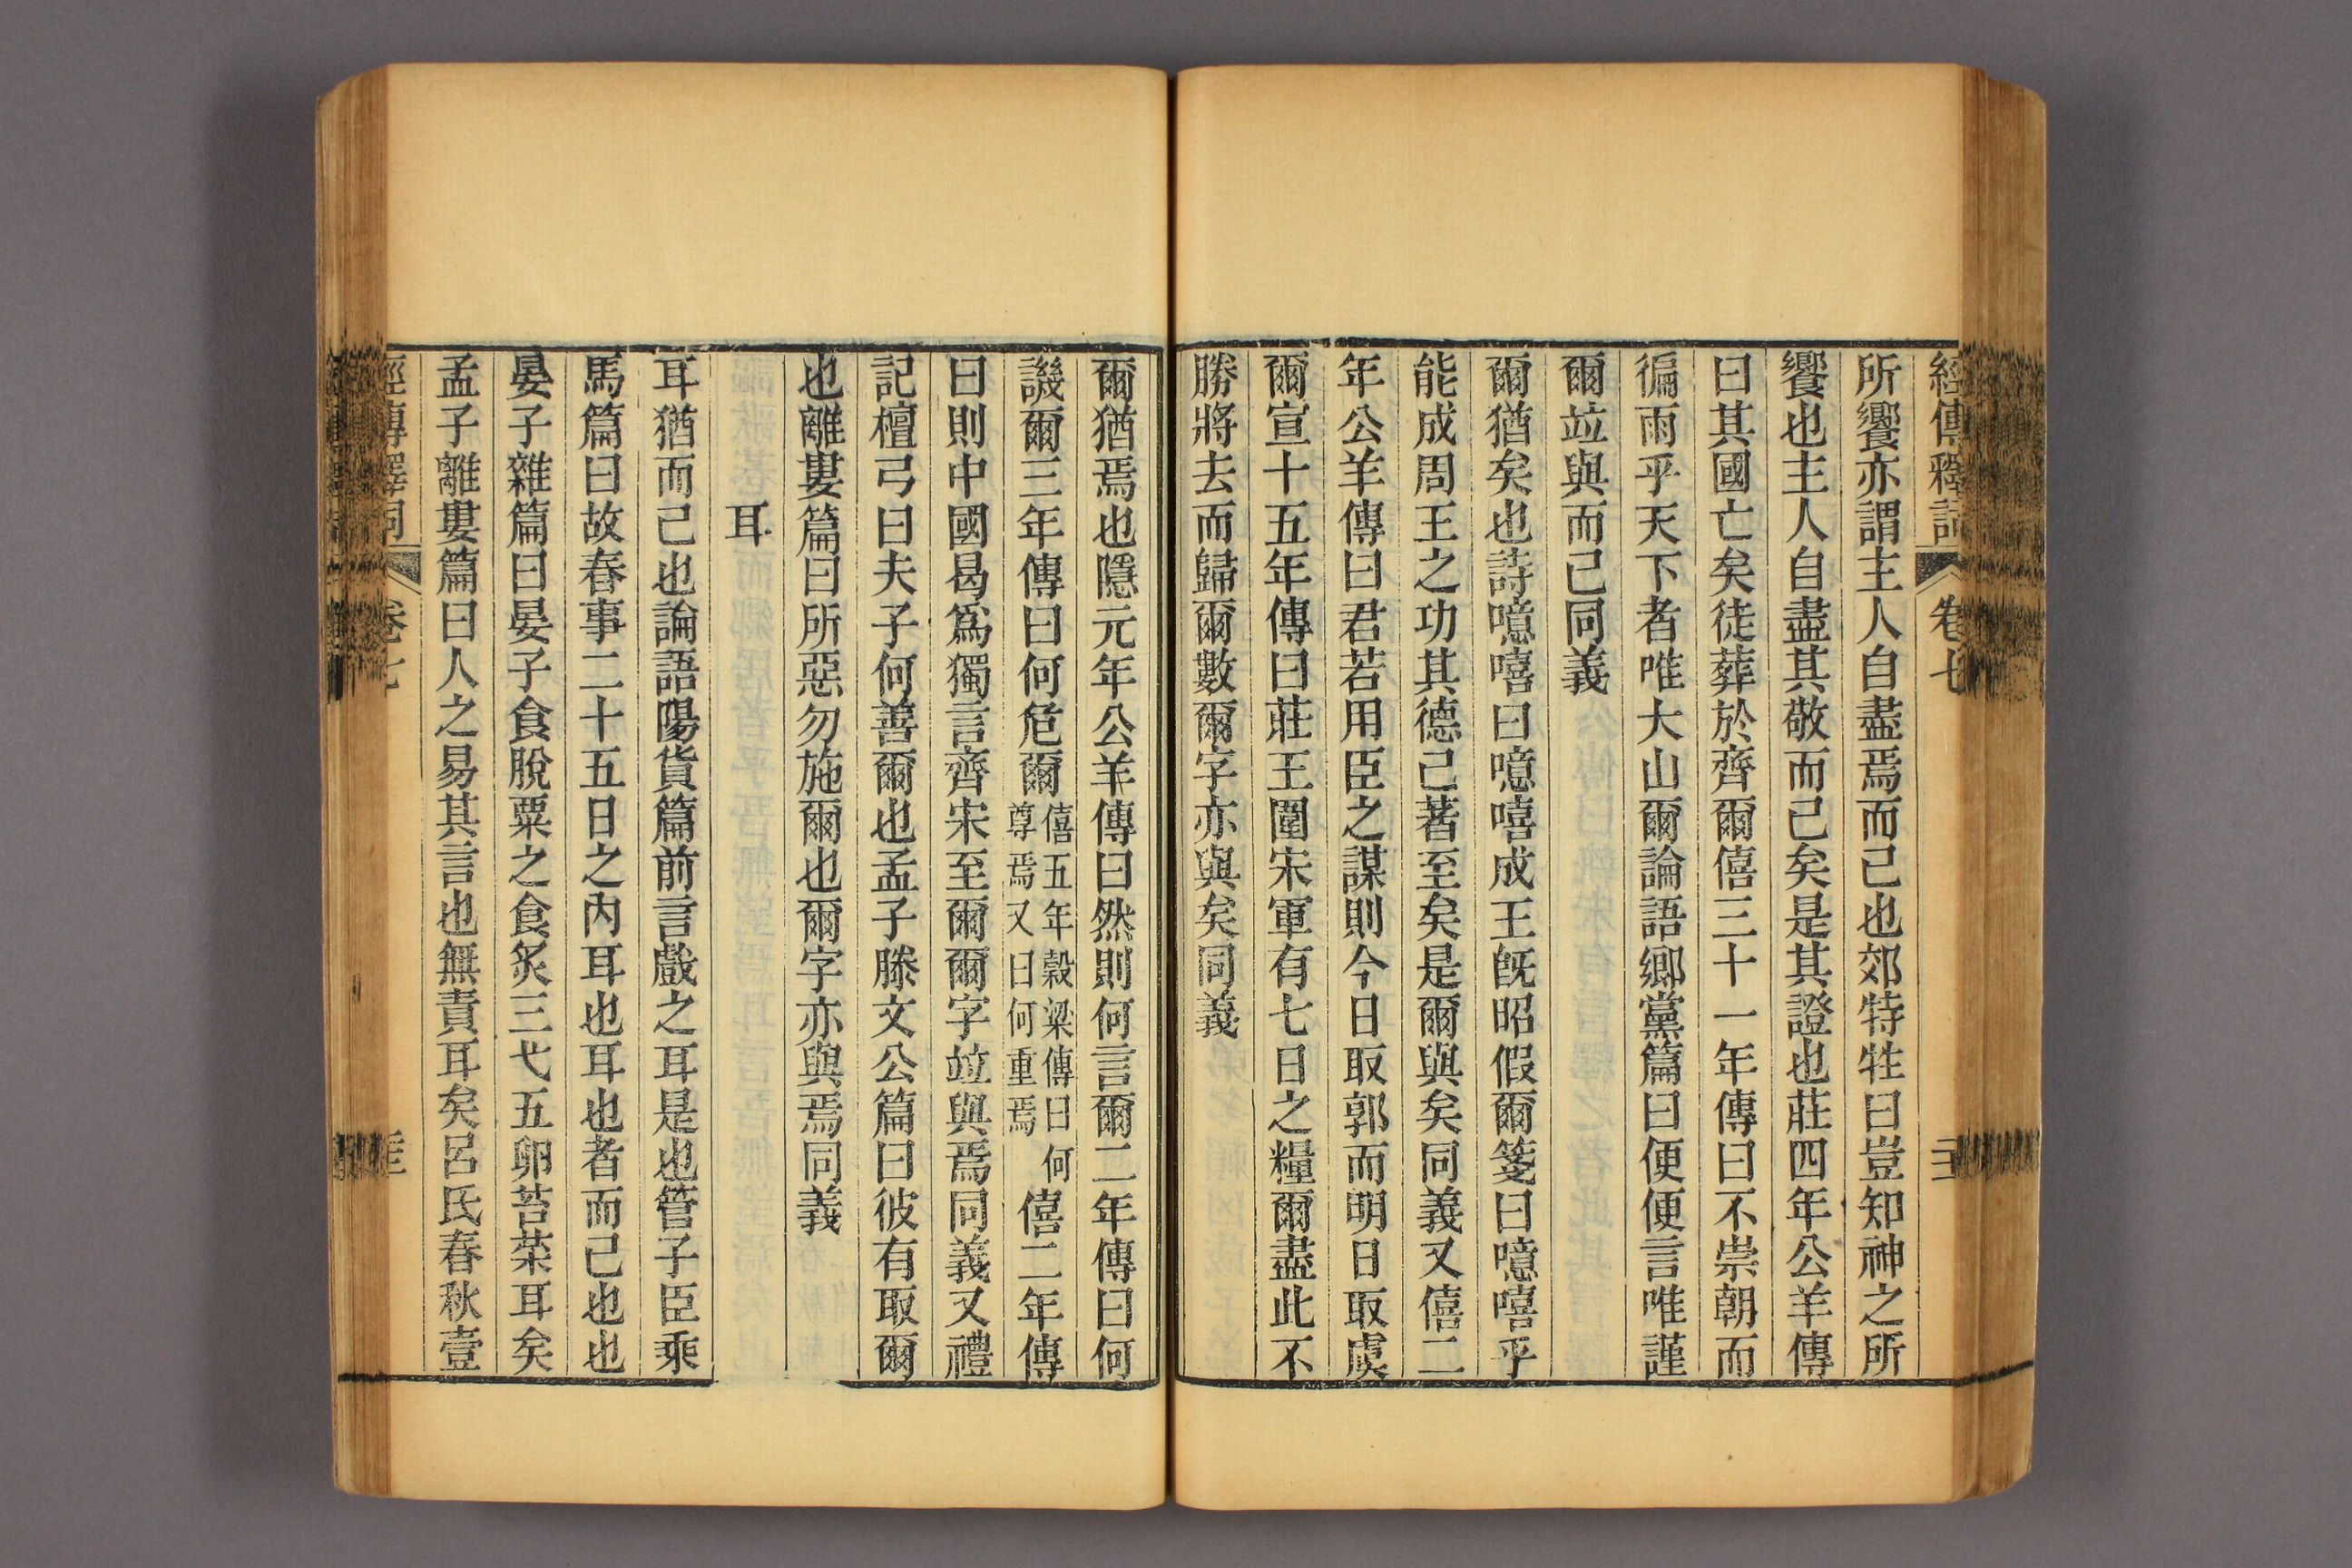 經傳釋詞 卷七
所饗亦謂主人自盡焉而已也郊特牲曰豈知神之所
饗也主人自盡其敬而已矣是其證也莊四年公羊傳
曰其國亡矣徒葬於齊爾僖三十一年傳曰不崇朝而
徧雨乎天下者唯大山爾論語鄉黨篇曰便便言唯謹
爾竝與而已同義
爾猶矣也詩噫嘻曰噫嘻成王旣昭假爾箋曰噫嘻乎
能成周王之功其德已著至矣是爾與矣同義又僖二
年公羊傳曰君若用臣之謀則今日取郭而明日取虞
爾宣十五年傳曰莊王圍宋軍有七日之糧爾盡此不
勝將去而歸爾數爾字亦與矣同義
爾猶焉也隱元年公羊傳曰然則何言爾二年傳曰何
譏爾三年傳曰何危爾僖五年穀梁傳曰何尊焉又曰何重焉僖二年傳
曰則中國曷爲獨言齊宋至爾爾字竝與焉同義又禮
記檀弓曰夫子何善爾也孟子滕文公篇曰彼有取爾
也離婁篇曰所惡勿施爾也爾字亦與焉同義
耳
耳猶而已也論語陽貨篇前言戲之耳是也管子臣乘
馬篇曰故春事二十五日之內耳也耳也者而已也也
晏子雜篇曰晏子食脫粟之食炙三弋五卵苔菜耳矣
孟子離婁篇曰人之易其言也無責耳矣呂氏春秋壹
經傳釋詞 卷七